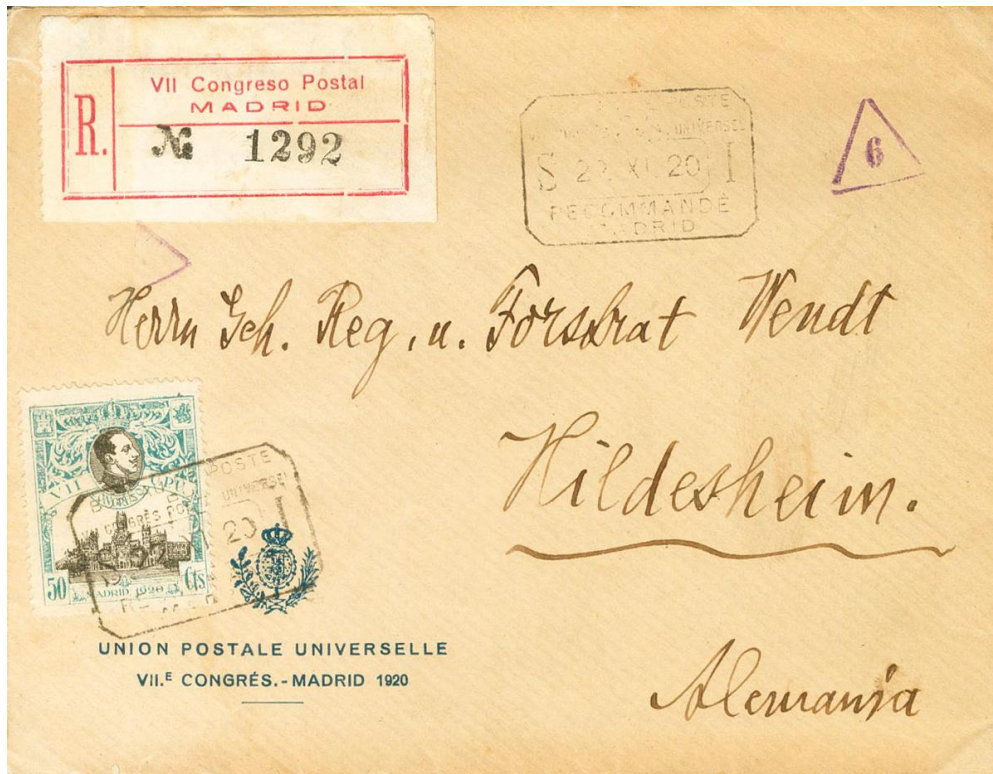 VII Congreso Postal
MADRID
R.
№ 1292
POSTE
UNIVERSEL
S 22 XI. 20 I
RECOMMANDÉ
MADRID
6
Herrn Geh. Reg. u. Forstrat Wendt
Hildesheim.
Alemania
VII UPU
POSTE
CONGRÈS UNIVERSEL
20 I
50 Cts
MADRID 1920
UNION POSTALE UNIVERSELLE
VII.E CONGRÉS.-MADRID 1920